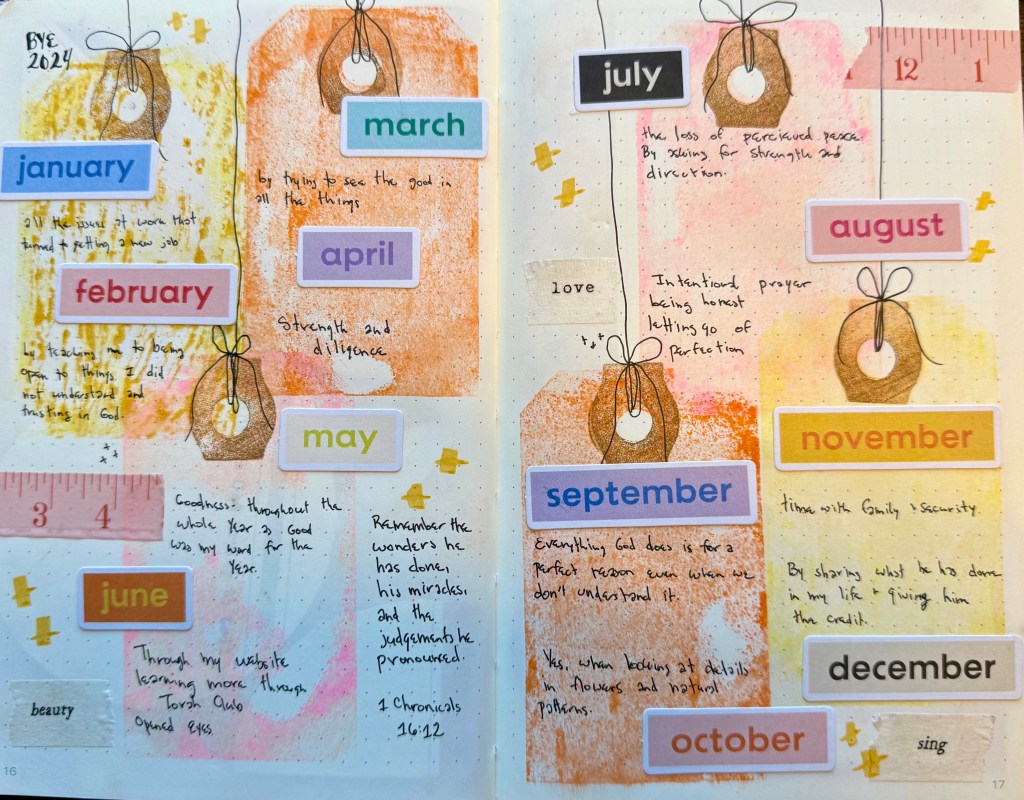 BYE
2024
january
all the issues at work that
turned to getting a new job
february
by teaching me to being
open to things I did
not understand and
trusting in God.
march
by trying to see the good in
all the things
april
Strength and
diligence
may
3 4
Goodness- throughout the
whole Year as Good
was my word for the
Year.
june
Through my website
learning more through
Torah Club
Opened Eyes
beauty
Remember the
wonders he
has done,
his miracles,
and the
judgements he
pronounced.
1 Chronicals
16:12
16
july
12 1
the loss of percieved peace.
By asking for strength and
direction.
august
love
Intentional prayer
being honest
letting go of
perfection
september
Everything God does is for a
perfect reason even when we
don't understand it.
Yes, when looking at details
in flowers and natural
patterns.
october
november
time with family & security.
By sharing what he has done
in my life + giving him
the credit.
december
sing
17